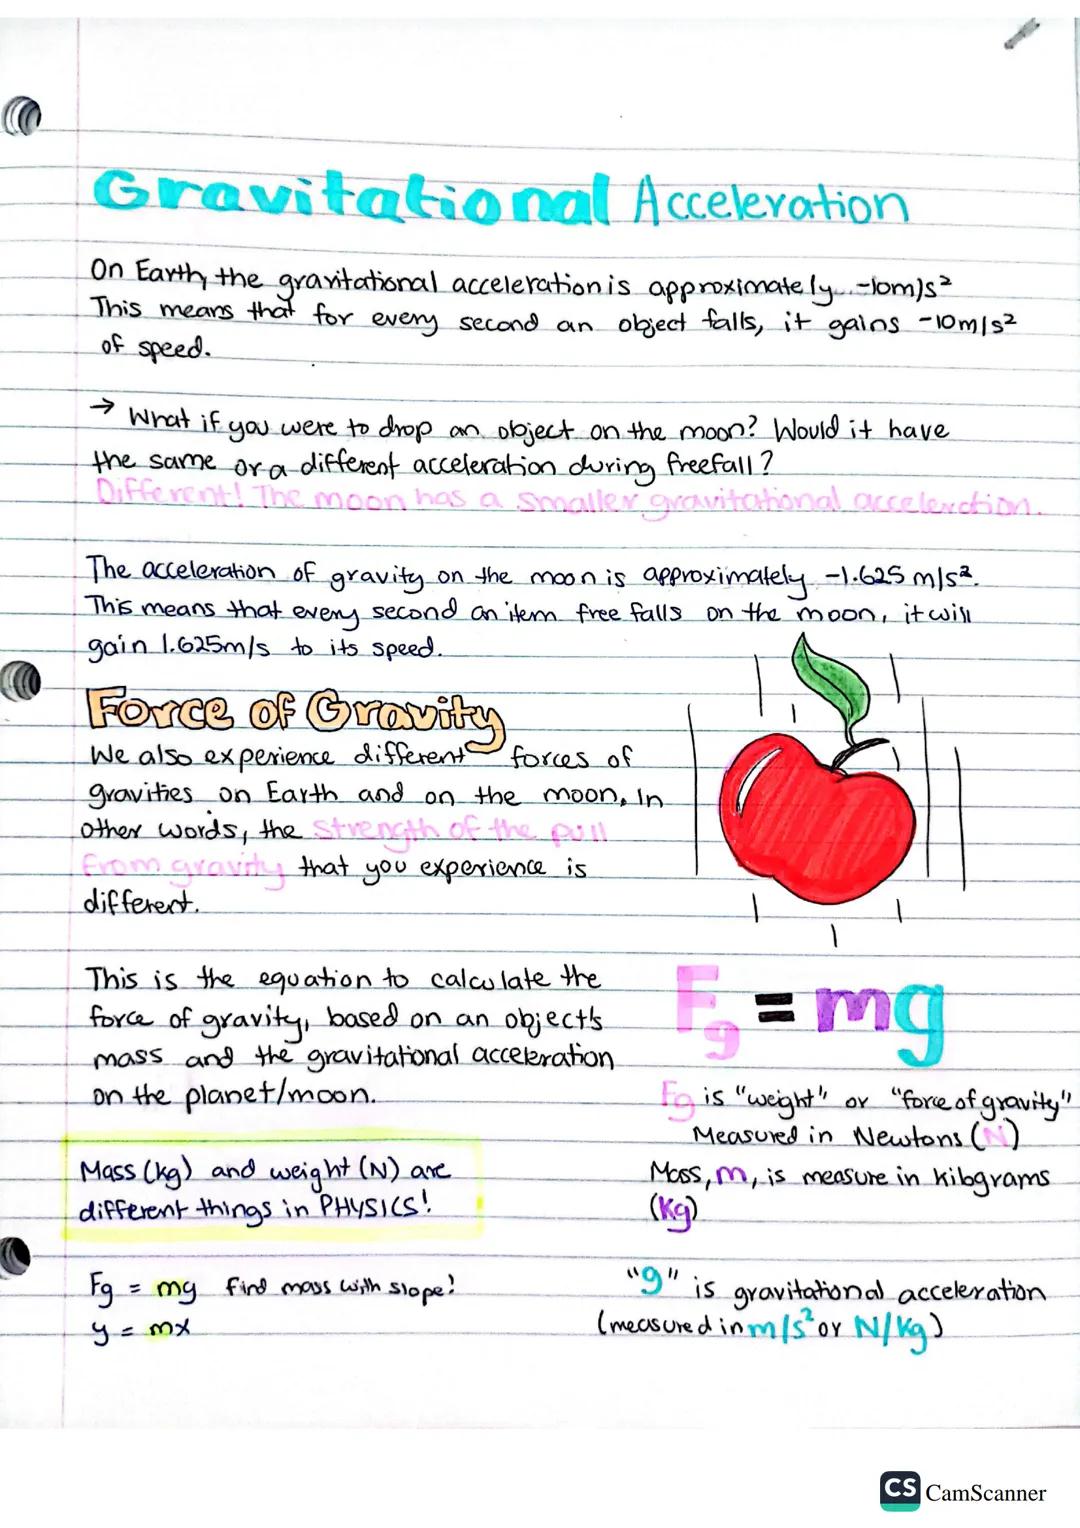 Gravitational Acceleration
On Earth, the gravitational acceleration is approximately -10m/s²
This means that for every second an object falls, it gains -10m/s²
of speed.
→ What if you were to drop an object on the moon? Would it have
the same or a different acceleration during freefall?
Different! The moon has a smaller gravitational acceleration.
The acceleration of gravity on the moon is approximately -1.625 m/s².
This means that every second an item free falls on the moon, it will
gain 1.625m/s to its speed.
Force of Gravity
We also experience different forces of
gravities on Earth and on the moon. In
other words, the strength of the pull
from gravity that you experience is
different.
This is the equation to calculate the
force of gravity, based on an object's
mass and the gravitational acceleration
on the planet/moon.
Fg = mg
Fg is "weight" or "force of gravity"
Measured in Newtons (N)
Mass, m, is measure in kilograms
(Kg)
Mass (kg) and weight (N) are
different things in PHYSICS!
"g" is gravitational acceleration
(measured in m/s² or N/Kg)
Fg = mg find mass with slope!
y = mx
CS CamScanner